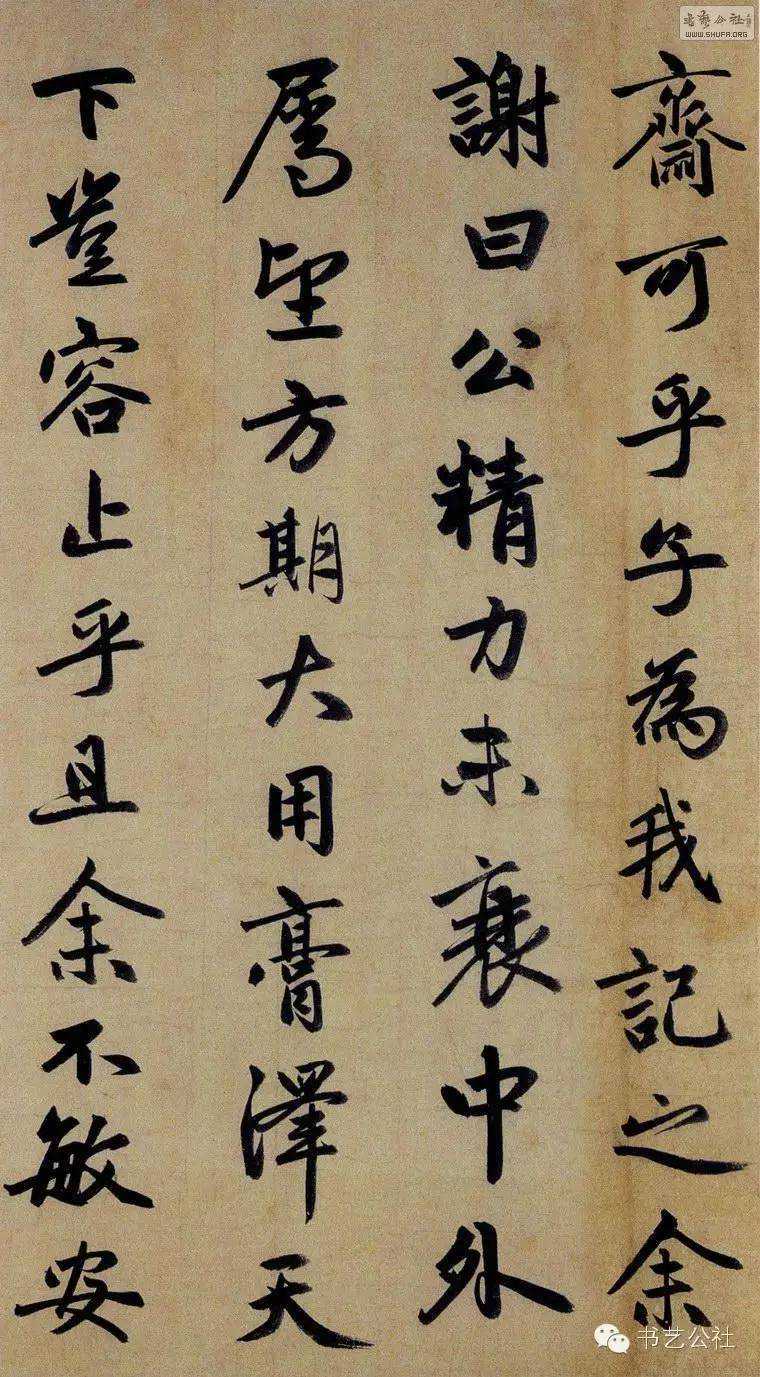 齋可乎子為我記之余
謝曰公精力未衰中外
属望方期大用膏澤天
下豈容止乎且余不敏安
書藝公社
WWW.SHUFA.ORG
书艺公社